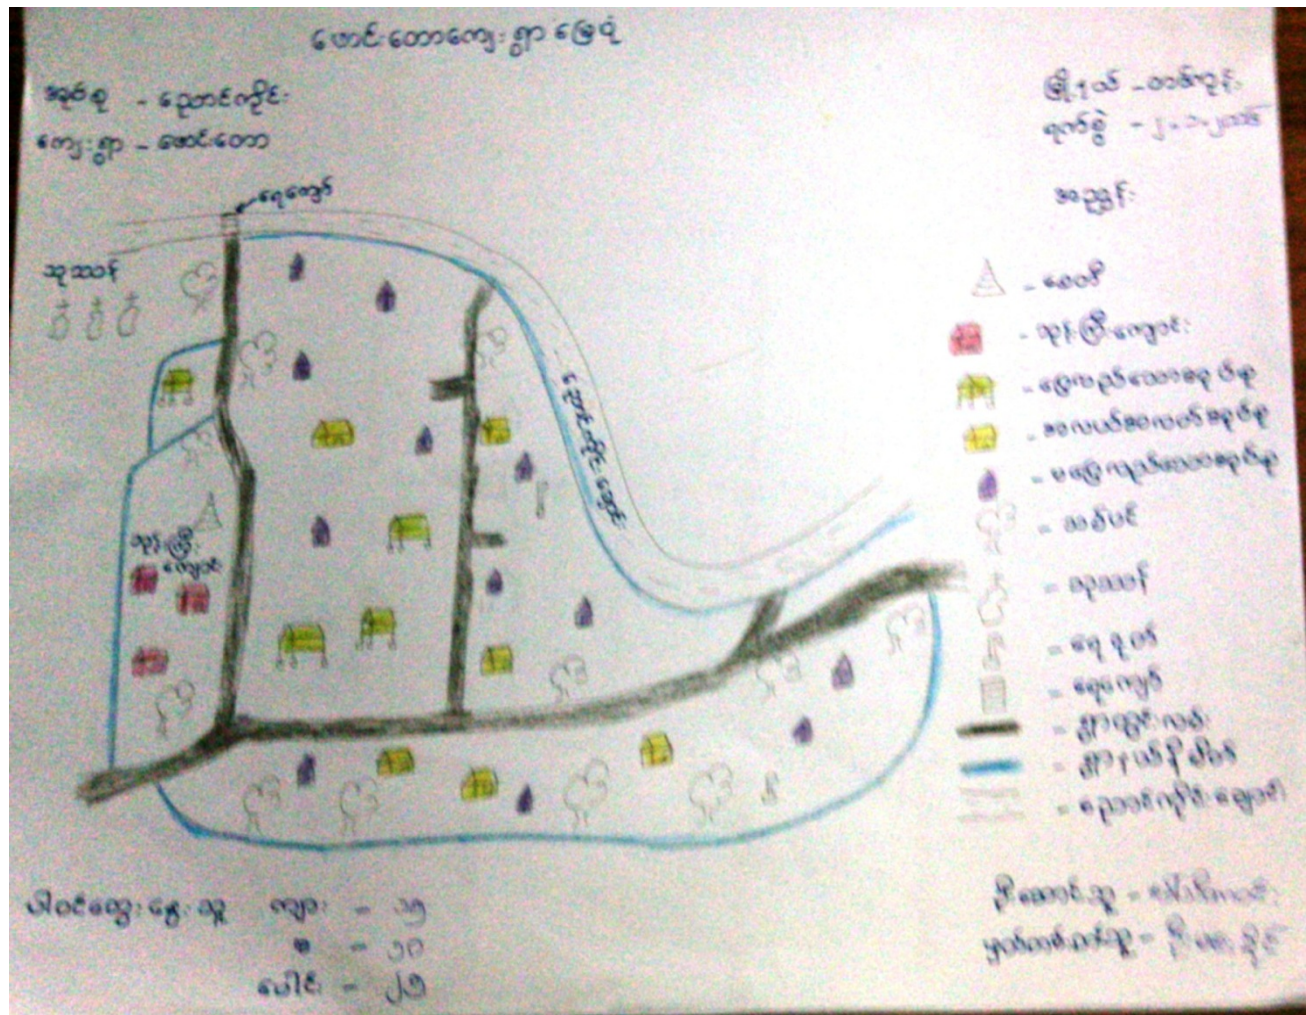 ဖောင်းတောကျေးရွာ မြေပုံ
အုပ်စု - ညောင်ကိုင်း
ကျေးရွာ - ဖောင်းတော
မြို့နယ် - တပ်ကုန်း
ရက်စွဲ - ၂.၁.၂၀၁၆
အညွှန်း
ရေကျော်
သုဿာန်
ညောင်ကိုင်းချောင်း
ဘုန်းကြီး
ကျောင်း
- စေတီ
- ဘုန်းကြီးကျောင်း
- ပြေလည်သောအုပ်စု
- အလယ်အလတ်အုပ်စု
- မပြေလည်သောအုပ်စု
= သစ်ပင်
= သုဿာန်
= ရေတွင်း
= ရေကျော်
= ရွာတွင်းလမ်း
= ရွာနယ်နိမိတ်
= ညောင်ကိုင်းချောင်း
ပါဝင်ဆွေးနွေးသူ ကျား - ၁၅
မ - ၁၀
ပေါင်း - ၂၅
ဦးဆောင်သူ =
မှတ်တမ်းတင်သူ =